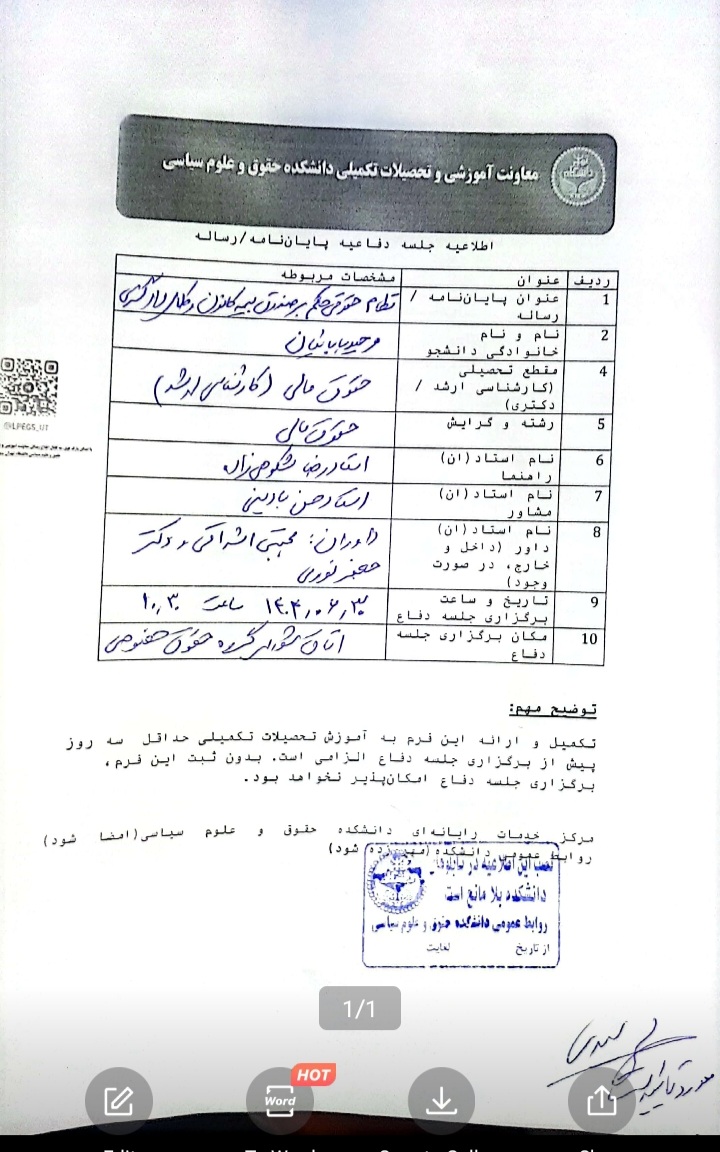 معاونت آموزشی و تحصیلات تکمیلی دانشکده حقوق و علوم سیاسی
اطلاعیه جلسه دفاعیه پایان‌نامه/رساله
ردیف عنوان مشخصات مربوطه
1 عنوان پایان‌نامه / رساله نظام حقوقی حاکم بر صندوق بیمه کانون وکلای دادگستری
2 نام و نام خانوادگی دانشجو بابائیان
4 مقطع تحصیلی (کارشناسی ارشد / دکتری) حقوق مالی (کارشناسی ارشد)
5 رشته و گرایش حقوق مالی
6 نام استاد(ان) راهنما استاد رضا شکوهی زاده
7 نام استاد(ان) مشاور استاد حسن بادینی
8 نام استاد(ان) داور (داخل و خارج، در صورت وجود) داوران: مجتبی اشراقی و دکتر جعفر نوری
9 تاریخ و ساعت برگزاری جلسه دفاع ساعت ۱۰،۳۰
10 مکان برگزاری جلسه دفاع اتاق شورای گروه حقوق خصوصی
@LPEGS_UT
توضیح مهم:
تکمیل و ارائه این فرم به آموزش تحصیلات تکمیلی حداقل سه روز
پیش از برگزاری جلسه دفاع الزامی است. بدون ثبت این فرم،
برگزاری جلسه دفاع امکان‌پذیر نخواهد بود.
مرکز خدمات رایانه‌ای دانشکده حقوق و علوم سیاسی(امضا شود)
روابط عمومی دانشکده (مهر زده شود)
نصب این اطلاعیه در تابلوهای
دانشکده بلا مانع است
روابط عمومی دانشکده حقوق و علوم سیاسی
از تاریخ لغایت
1/1
مورد تائید است
HOT
Word